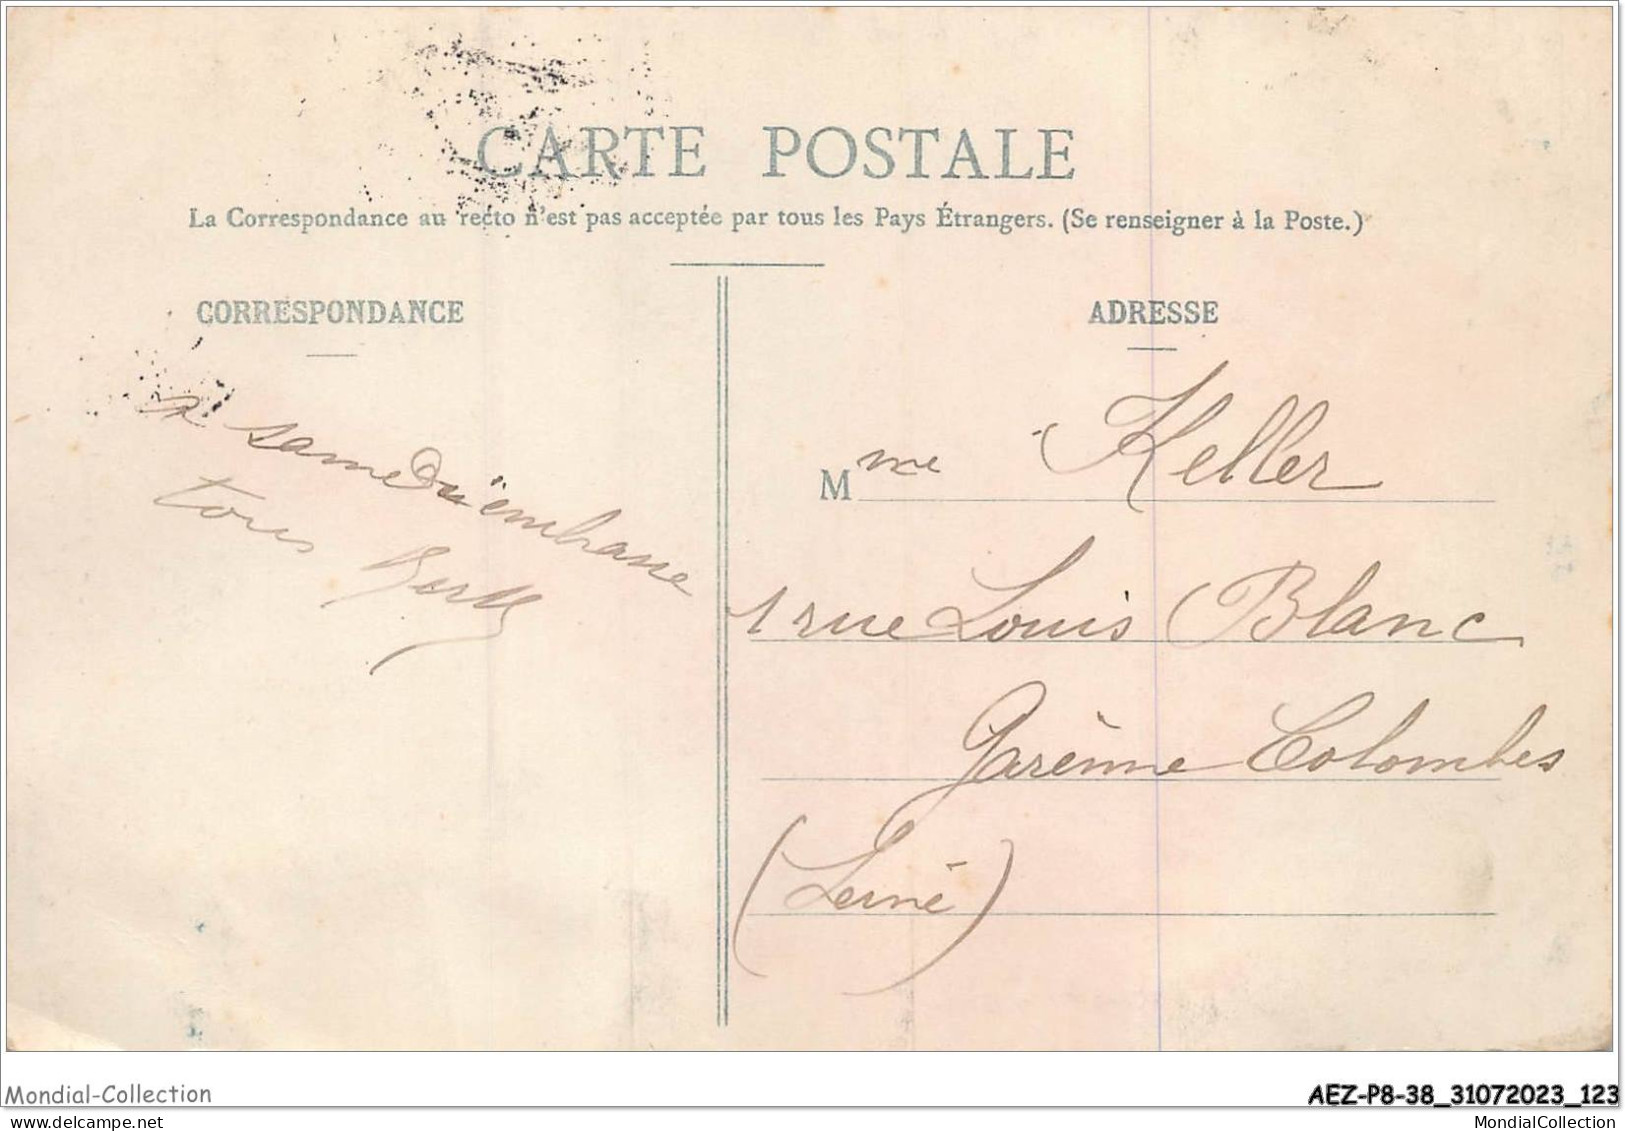 CARTE POSTALE
La Correspondance au recto n'est pas acceptée par tous les Pays Étrangers. (Se renseigner à la Poste.)
CORRESPONDANCE
a samedi
tous
ADRESSE
Mme Keller
1 rue Louis Blanc
Garenne Colombes
(Seine)
Mondial-Collection
AEZ-P8-38_31072023_123
MondialCollection
MondialCollection